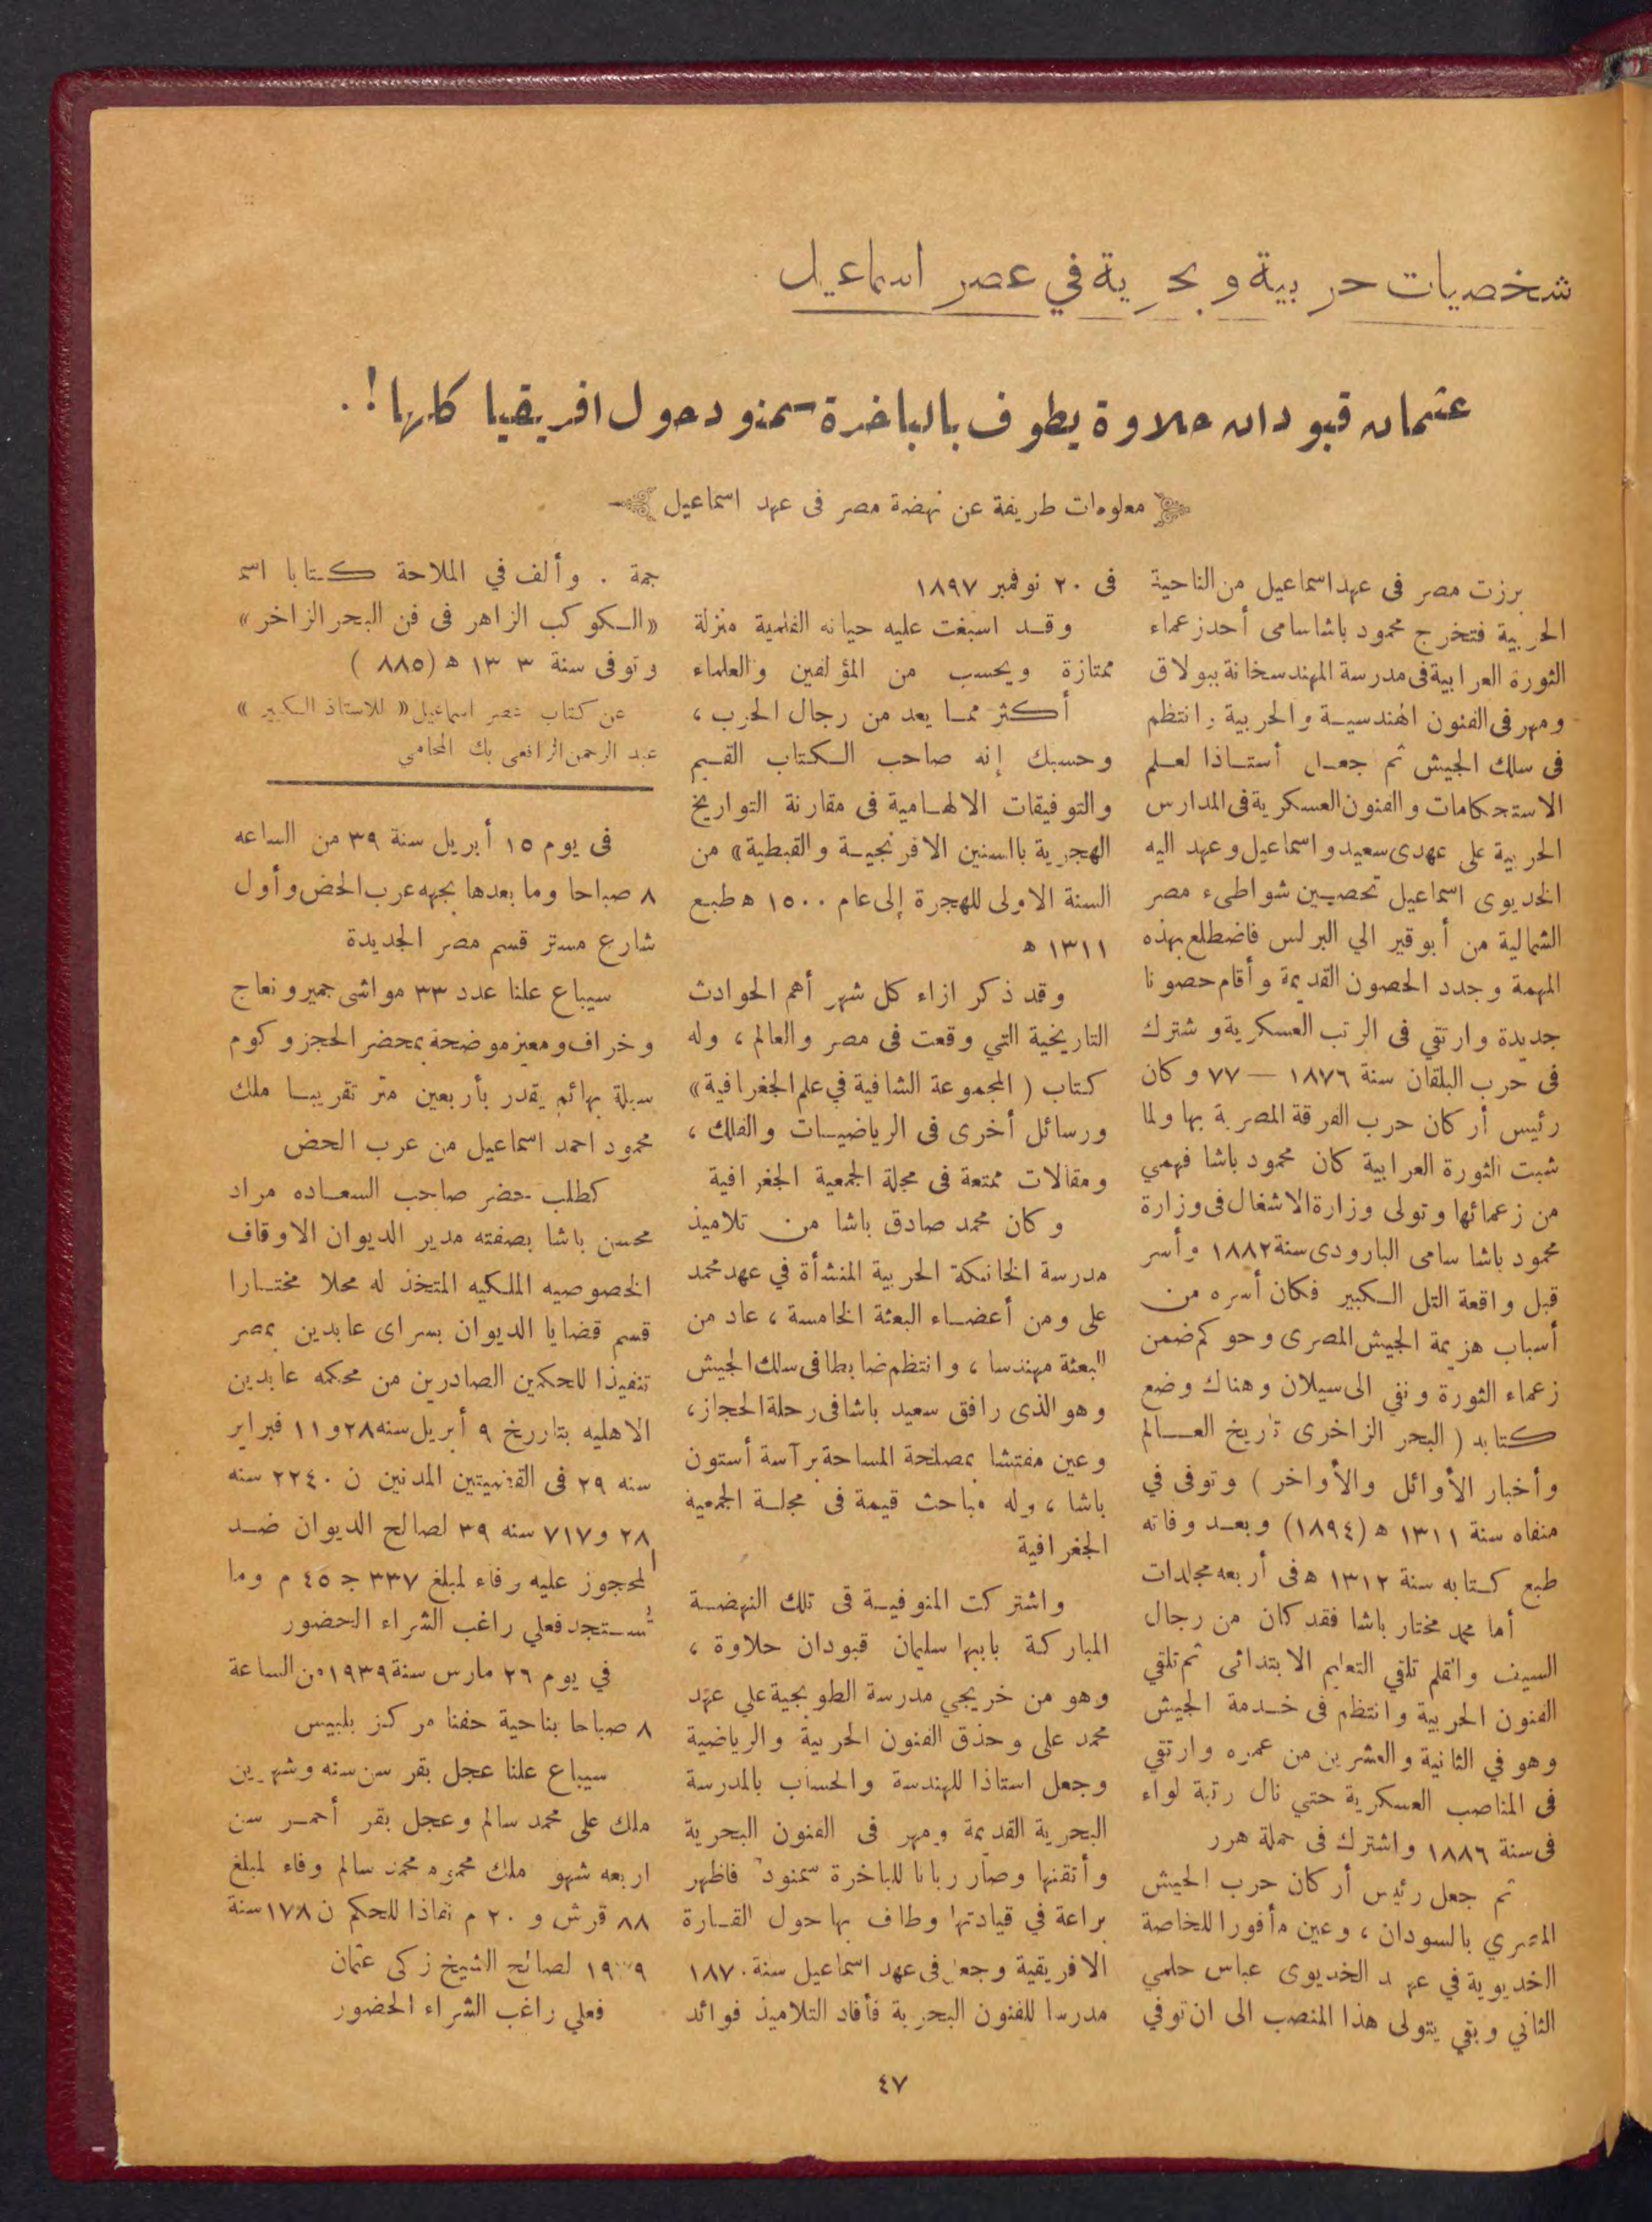 شخصيات حربية وبحرية في عصر اسماعيل
عثمان قبودان حلاوة يطوف بالباخرة سمنود حول افريقيا كلها ! .
معلومات طريفة عن نهضة مصر فى عهد اسماعيل
برزت مصر فى عهد اسماعيل من الناحية
الحربية فتخرج محمود باشا سامى أحد زعماء
الثورة العرابية فى مدرسة المهندسخانة ببولاق
ومهر فى الفنون الهندسية والحربية وانتظم
فى سلك الجيش ثم جعل أستاذا لعلم
الاستحكامات والفنون العسكرية فى المدارس
الحربية على عهدى سعيد واسماعيل وعهد اليه
الخديوى اسماعيل تحصيين شواطىء مصر
الشمالية من أبو قير الي البرلس فاضطلع بهذه
المهمة وجدد الحصون القديمة وأقام حصونا
جديدة وارتقي فى الرتب العسكرية و شترك
فى حرب البلقان سنة ١٨٧٦ — ٧٧ وكان
رئيس أركان حرب الفرقة المصرية بها ولما
شبت الثورة العرابية كان محمود باشا فهمي
من زعمائها وتولى وزارة الاشغال فى وزارة
محمود باشا سامى البارودى سنة ١٨٨٢ وأسر
قبل واقعة التل الكبير فكان أسره من
أسباب هزيمة الجيش المصرى وحوكم ضمن
زعماء الثورة ونفي الى سيلان وهناك وضع
كتابه ( البحر الزاخرى تاريخ العالم
وأخبار الأوائل والأواخر ) وتوفى في
منفاه سنة ١٣١١ ه (١٨٩٤) وبعد وفاته
طبع كتابه سنة ١٣١٢ ه فى أربعه مجلدات
أما محمد مختار باشا فقد كان من رجال
السيف والقلم تلقي التعليم الابتدائى ثم تلقي
الفنون الحربية وانتظم فى خدمة الجيش
وهو في الثانية والعشرين من عمره وارتقي
فى المناصب العسكرية حتي نال رتبة لواء
فى سنة ١٨٨٦ واشترك فى حملة هرر
ثم جعل رئيس أركان حرب الجيش
المصري بالسودان ، وعين مأمورا للخاصة
الخديوية في عهد الخديوى عباس حلمي
الثاني وبقي يتولى هذا المنصب الى ان توفي
فى ٢٠ نوفمبر ١٨٩٧
وقد اسبغت عليه حياته القلمية منزلة
ممتازة ويحسب من المؤلفين والعلماء
أكثر مما يعد من رجال الحرب ،
وحسبك إنه صاحب الكتاب القيم
والتوفيقات الالهامية فى مقارنة التواريخ
الهجرية بالسنين الافرنجية والقبطية» من
السنة الاولى للهجرة إلى عام ١٥٠٠ ه طبع
١٣١١ ه
وقد ذكر ازاء كل شهر أهم الحوادث
التاريخية التي وقعت فى مصر والعالم ، وله
كتاب ( المجموعة الشافية في علم الجغرافية»
ورسائل أخرى فى الرياضيات والفلك ،
ومقالات ممتعة فى مجلة الجمعية الجغرافية
وكان محمد صادق باشا من تلاميذ
مدرسة الخانكة الحربية المنشأة في عهد محمد
على ومن أعضاء البعثة الخامسة ، عاد من
البعثة مهندسا ، وانتظم ضابطا فى سلك الجيش
وهو الذى رافق سعيد باشا فى رحلة الحجاز ،
وعين مفتشا بمصلحة المساحة برآسة أستون
باشا ، وله مباحث قيمة فى مجلة الجمعية
الجغرافية
واشتركت المنوفية قى تلك النهضة
المباركة بابنها سليمان قبودان حلاوة ،
وهو من خريجي مدرسة الطوبجية علي عهد
محمد على وحذق الفنون الحربية والرياضية
وجعل استاذا للهندسة والحساب بالمدرسة
البحرية القديمة ومهر فى الفنون البحرية
وأتقنها وصار ربانا للباخرة سمنود فاظهر
براعة في قيادتها وطاف بها حول القارة
الافريقية وجعل فى عهد اسماعيل سنة ١٨٧٠
مدرسا للفنون البحرية فأفاد التلاميذ فوائد
جمة . وألف في الملاحة كتابا اسم
«الكوكب الزاهر فى فن البحر الزاخر»
وتوفى سنة ٣ ١٣ ه (٨٨٥ )
عن كتاب عصر اسماعيل « للاستاذ الكبير »
عبد الرحمن الرافعى بك المحامي
فى يوم ١٥ أبريل سنة ٣٩ من الساعه
٨ صباحا وما بعدها بجهه عرب الحض وأول
شارع مستر قسم مصر الجديدة
سيباع علنا عدد ٣٣ مواشى حمير ونعاج
وخراف ومعيز موضحة بمحضر الحجز وكوم
سبلة بهائم يقدر بأربعين متر تقريبا ملك
محمود احمد اسماعيل من عرب الحض
كطلب حضر صاحب السعاده مراد
محسن باشا بصفته مدير الديوان الاوقاف
الخصوصيه الملكيه المتخذ له محلا مختارا
قسم قضايا الديوان بسراى عابدين بمصر
تنفيذا للحكمين الصادرين من محكمه عابدين
الاهليه بتاريخ ٩ أبريل سنه ٢٨ و ١١ فبراير
سنه ٢٩ فى القضيتين المدنين ن ٢٢٤٠ سنه
٢٨ و ٧١٧ سنه ٣٩ لصالح الديوان ضد
المحجوز عليه وفاء لمبلغ ٣٣٧ ج ٤٥ م وما
يستجد فعلي راغب الشراء الحضور
في يوم ٢٦ مارس سنة ١٩٣٩ من الساعة
٨ صباحا بناحية حفنا مركز بلبيس
سيباع علنا عجل بقر سن سنه وشهرين
ملك على محمد سالم وعجل بقر أحمر سن
اربعه شهو ملك محمد سالم وفاء لمبلغ
٨٨ قرش و ٢٠ م نفاذا للحكم ن ١٧٨ سنة
١٩٣٩ لصالح الشيخ زكى عثمان
فعلي راغب الشراء الحضور
٤٧